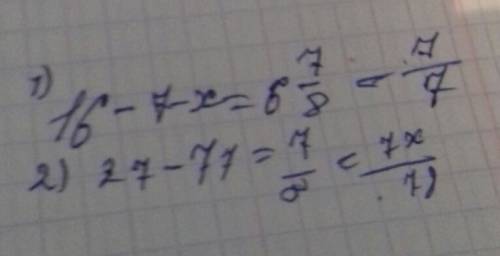 1) 16 - 7 - x = 6 7/8 - 7/7
2) 27 - 77 = 7/8 = 7x/7)